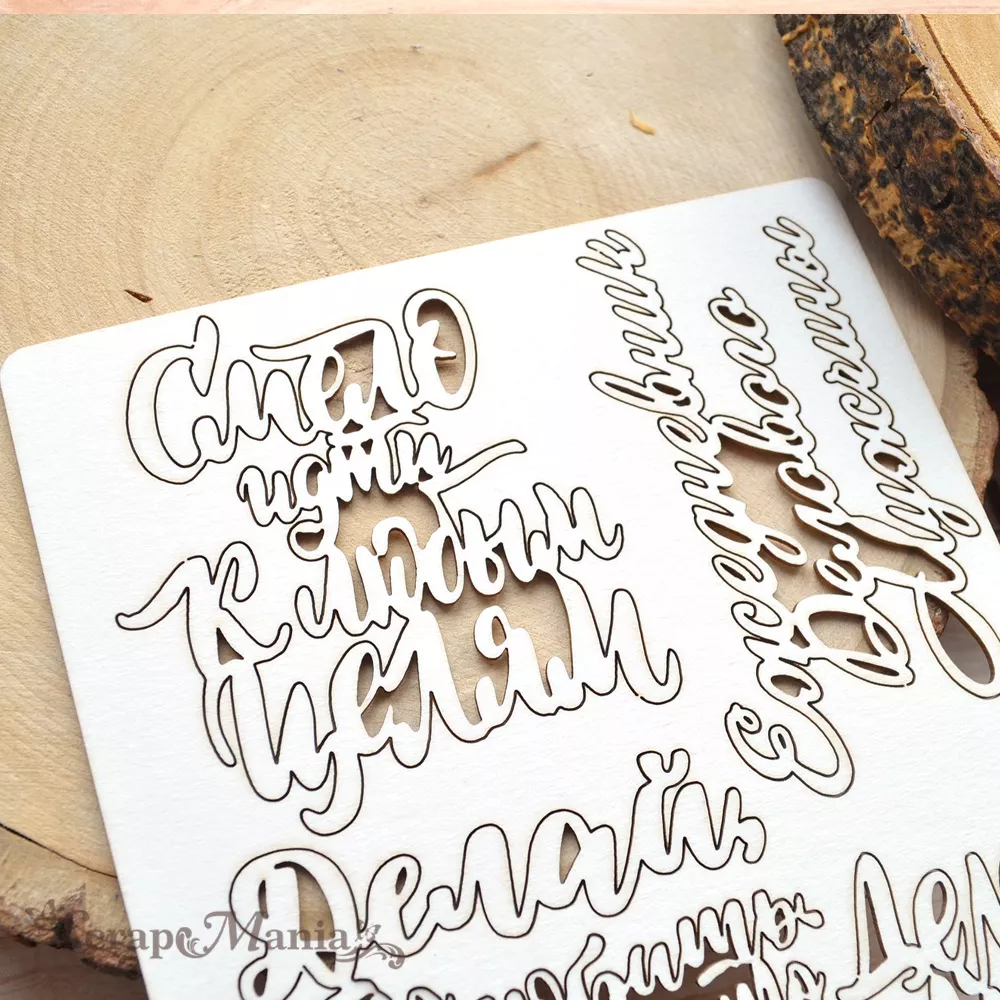 Смело
идти
к любым
целям
Ежедневник
Делового
Мужчины
Делай,
Scrap Mania